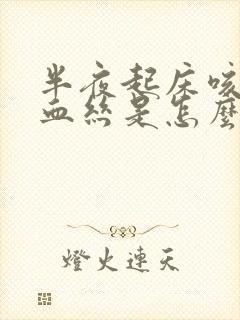 半夜起床咳
血絲是怎麼
燈火連天